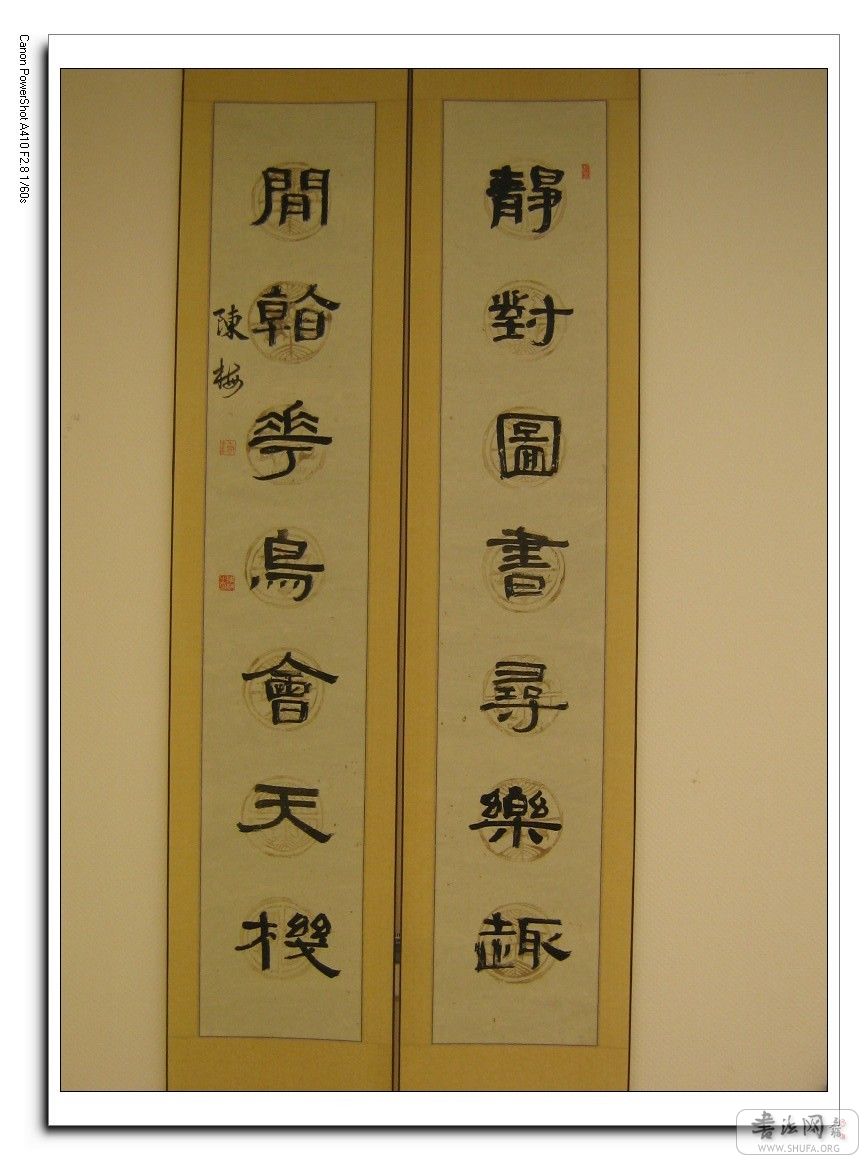 靜對圖書尋樂趣
閒翰花鳥會天機
陳梅
Canon PowerShot A410 F2.8 1/60s
书法网
WWW.SHUFA.ORG